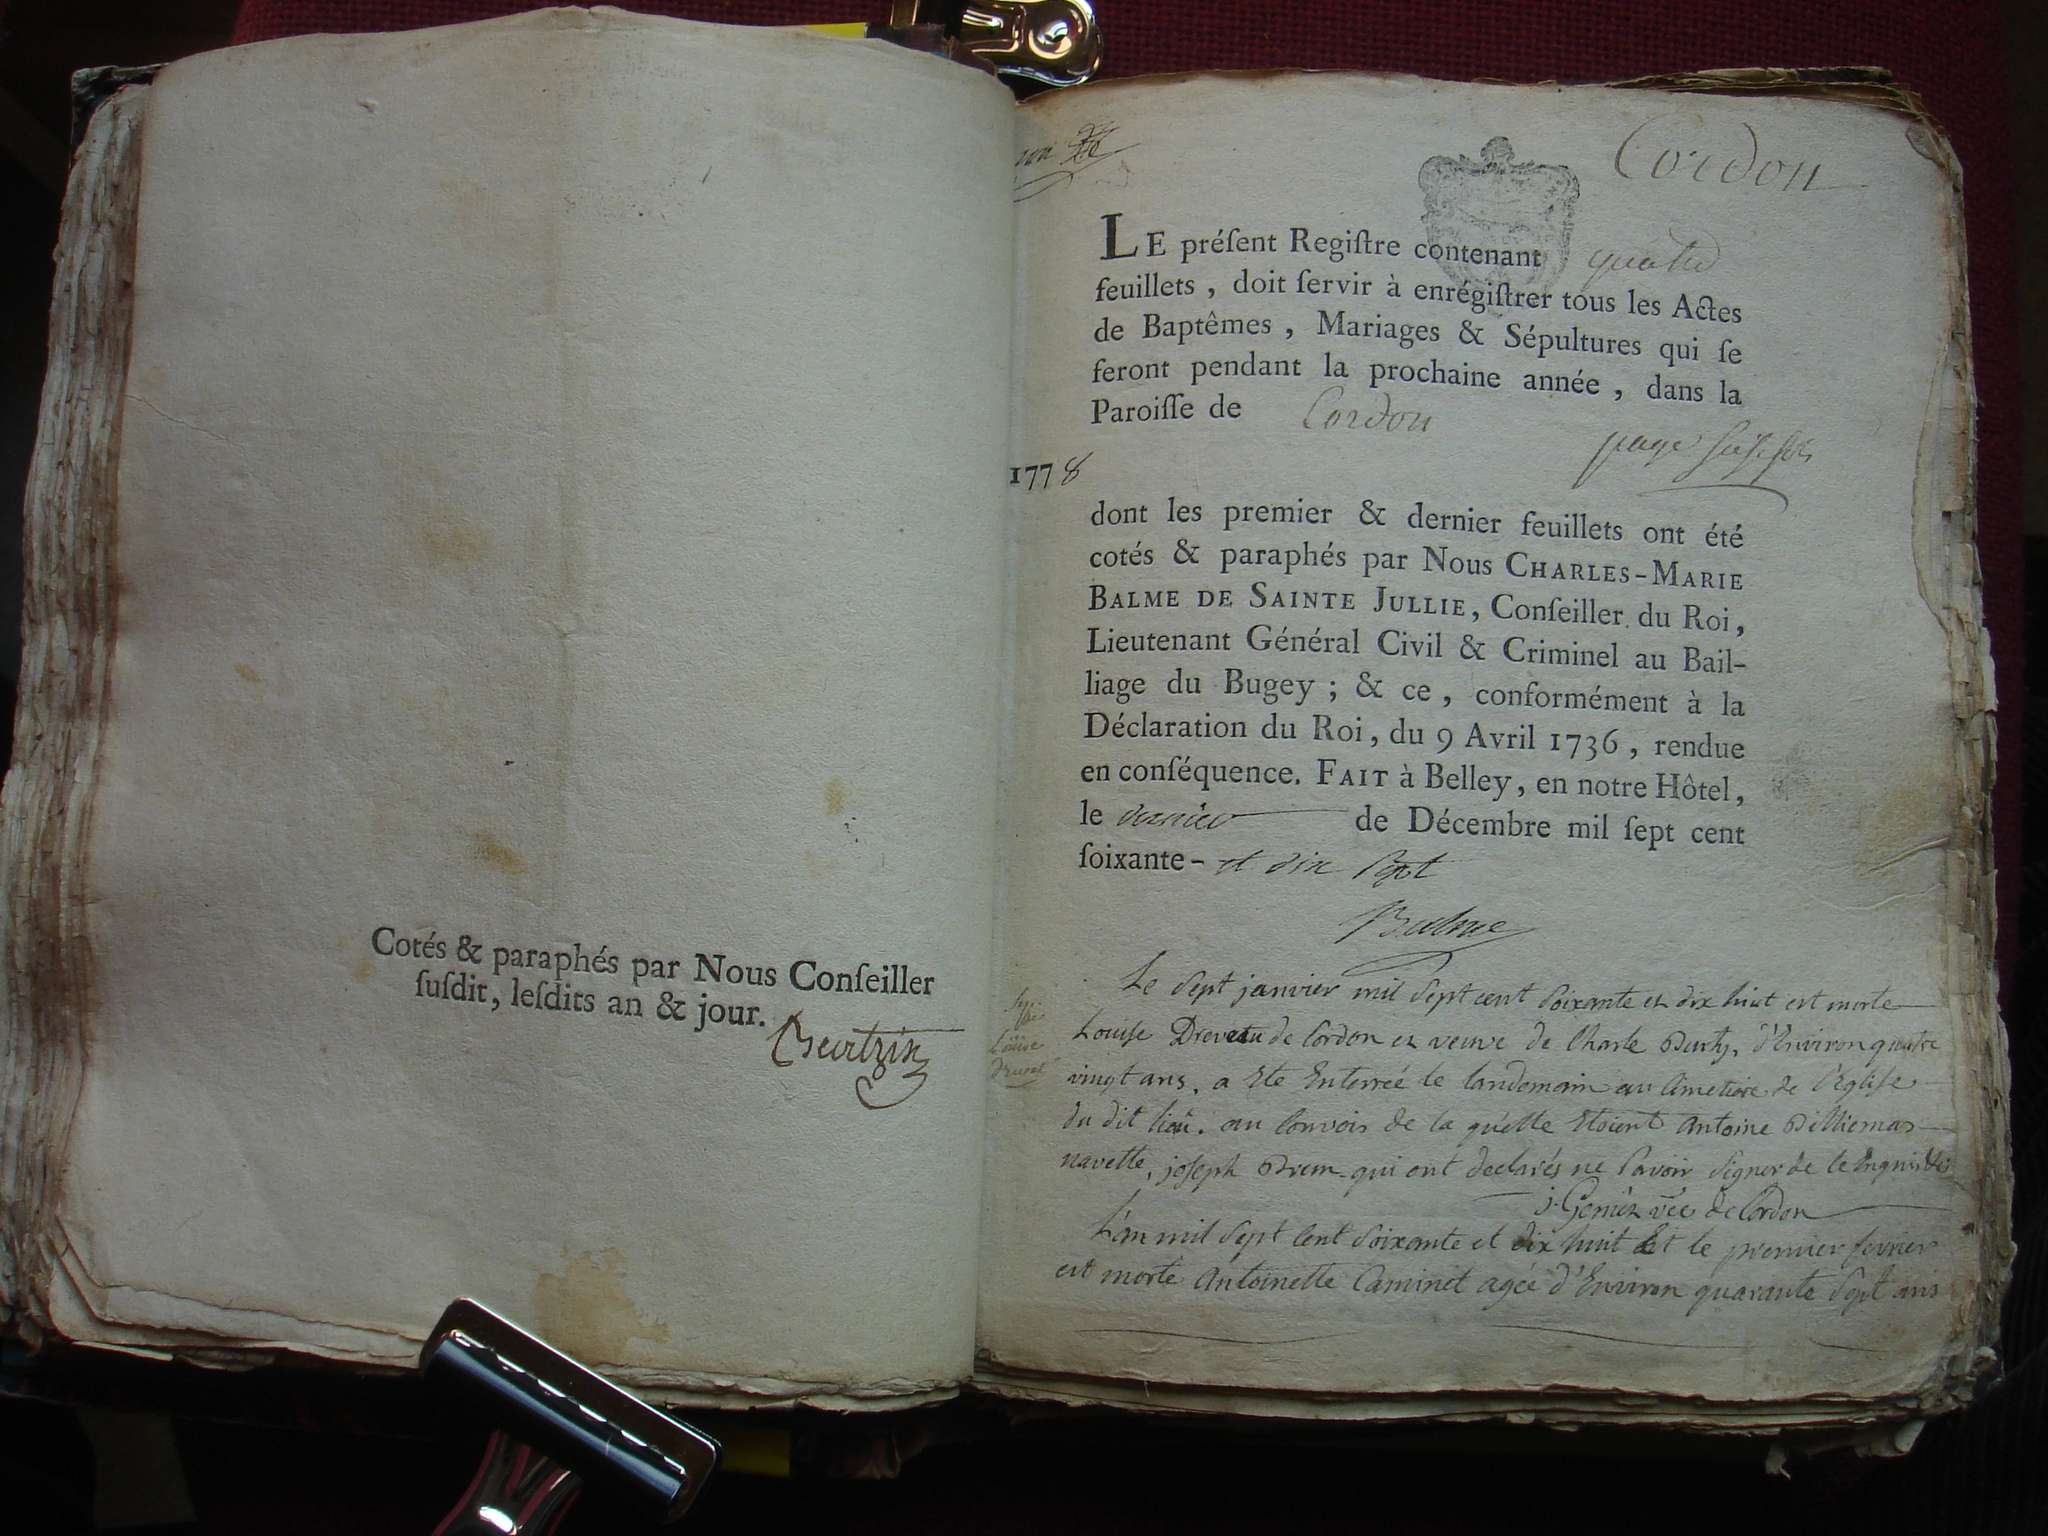 Cotés & paraphés par Nous Conſeiller
ſuſdit, leſdits an & jour.
Cordon
LE préſent Regiſtre contenant quatre
feuillets, doit ſervir à enrégiſtrer tous les Actes
de Baptêmes, Mariages & Sépultures qui ſe
feront pendant la prochaine année, dans la
Paroiſſe de Cordon
page
1778
dont les premier & dernier feuillets ont été
cotés & paraphés par Nous CHARLES-MARIE
BALME DE SAINTE JULLIE, Conſeiller du Roi,
Lieutenant Général Civil & Criminel au Bail-
liage du Bugey; & ce, conformément à la
Déclaration du Roi, du 9 Avril 1736, rendue
en conſéquence. FAIT à Belley, en notre Hôtel,
le dernier de Décembre mil ſept cent
ſoixante- et dix Sept
Balme
Le Sept janvier mil Sept cent Soixante et dix huit est morte
Louise de Cordon et veuve de Charle d'Environ quatre
vingt ans, a Ete Enterreé le landemain au Cimetiere de l'Eglise
du dit lieu. au Convois de la quelle Etoient Antoine
navette, joseph qui ont declarés ne Savoir Signer de ce Enquis
j. Genin vre de Cordon
L'an mil Sept Cent Soixante et dix huit Et le premier fevrier
est morte Antoinette Caminet agée d'Environ quarante Sept ans